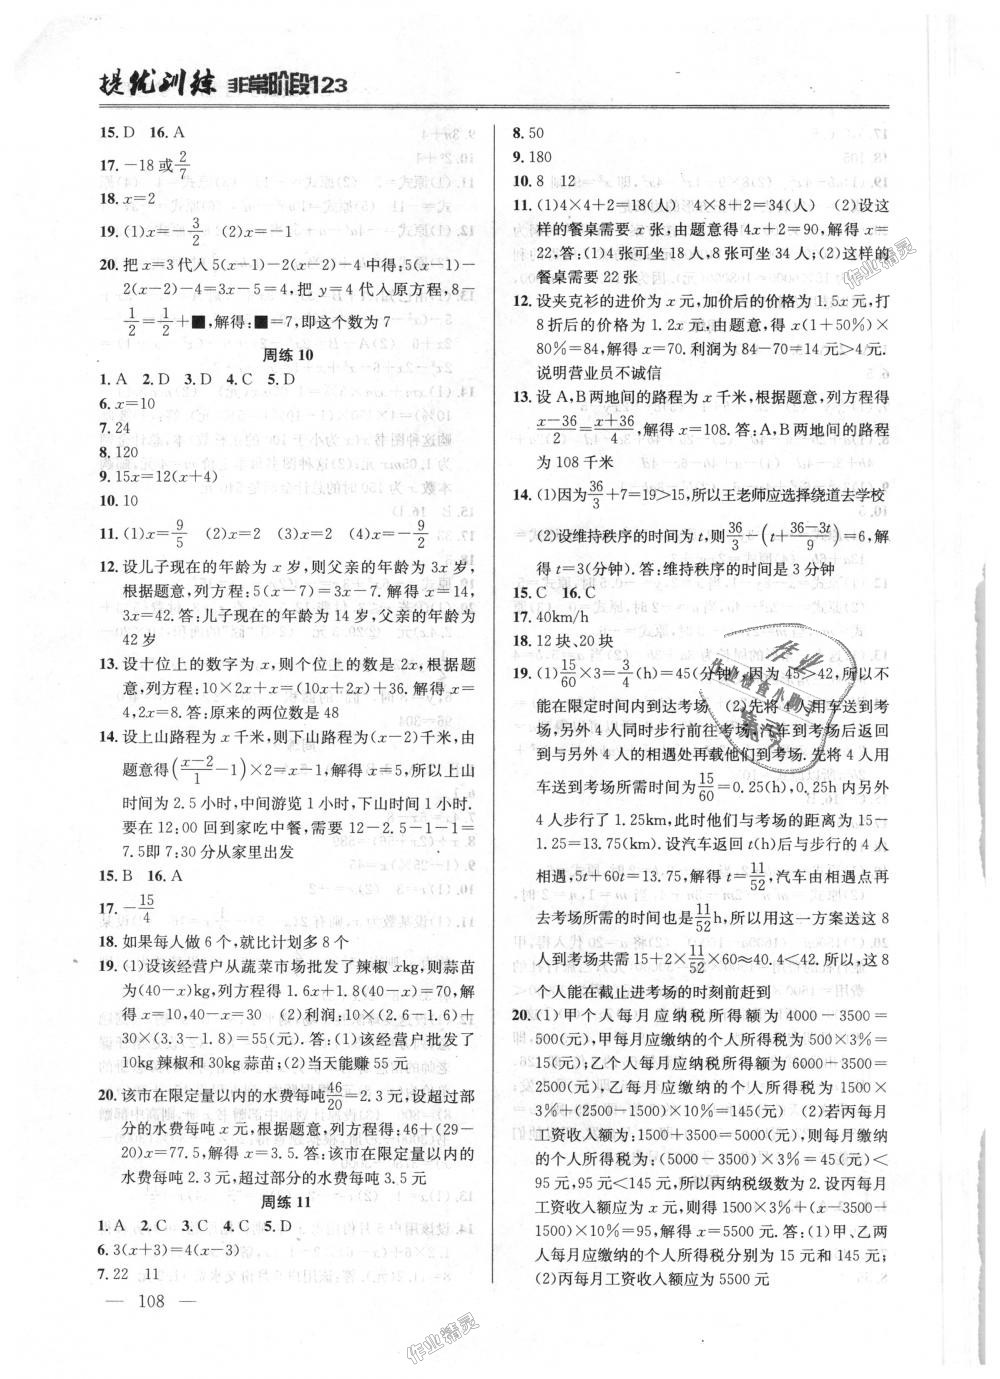 提优训练 非常阶段123
15. D 16. A
17. －18或2/7
18. x=2
19. (1)x=－3/2 (2)x=－1
20. 把 x=3代人 5(x－1)－2(x－2)－4 中得:5(x－1)－
2(x－2)－4=3x－5=4,把 y=4 代人原方程,8－
1/2=1/2+■,解得:■=7,即这个数为7
周练 10
1. A 2. D 3. D 4. C 5. D
6. x=10
7. 24
8. 120
9. 15x=12(x+4)
10. 10
11. (1)x=9/5 (2)x=2 (3)x=2 (4)x=－9/2
12. 设儿子现在的年龄为 x 岁,则父亲的年龄为 3x 岁,
根据题意,列方程: 5(x－7)=3x－7. 解得 x=
14. 答:儿子现在的年龄为 14 岁,父亲的年龄为
42 岁
13. 设十位上的数字为 x,则个位上的数是 2x,根据题
意,列方程:10×2x+x=(10x+2x)+36,解得
x=4,2x=8. 答:原来的两位数是 48
14. 设上山路程为 x 千米,则下山路程为(x－2)千米,由
题意得((x－2)/1－1)×2=x－1,解得 x=5,所以上山
时间为 2.5 小时,中间游览 1 小时,下山时间 1 小时.
要在 12:00 回到家吃中餐,需要 12－2.5－1－1=
7.5即 7:30 分从家里出发
15. B 16. A
17. －15/4
18. 如果每人做 6 个,就比计划多 8 个
19. (1)设该经营户从蔬菜市场批发了辣椒 xkg,则蒜苗
为(40－x)kg,列方程得 1.6x+1.8(40－x)=70,解
得 x=10,40－x=30 (2)利润:10×(2.6－1.6)+
30×(3.3－1.8)=55(元) 答:(1)该经营户批发了
10kg 辣椒和 30kg 蒜苗;(2)当天能赚 55 元
20. 该市在限定量以内的水费每吨46/20=2.3 元,设超过部
分的水费每吨 x 元,根据题意,列方程得:46+(29－
20)x=77.5,解得 x=3.5. 答:该市在限定量以内的
水费每吨 2.3 元,超过部分的水费每吨 3.5 元
周练 11
1. A 2. C 3. C 4. C 5. D
6. 3(x+3)=4(x－3)
7. 22 11
— 108 —
8. 50
9. 180
10. 8 12
11. (1)4×4+2=18(人) 4×8+2=34(人) (2)设这
样的餐桌需要 x 张;由题意得 4x+2=90,解得 x=
22,答:(1)4 张可坐 18 人,8 张可坐 34 人;(2)这样的
餐桌需要 22 张
12. 设夹克衫的进价为 x 元,加价后的价格为 1.5x 元,打
8 折后的价格为 1.2x 元,由题意,得 (1+50%)×
80%=84,解得 x=70. 利润为 84－70=14元>4元.
说明营业员不诚信
13. 设 A,B 两地间的路程为 x 千米,根据题意,列方程得
(x－36)/2=(x+36)/4,解得 x=108. 答:A,B 两地间的路程
为 108 千米
14. (1)因为36/3+7=19>15,所以王老师应选择绕道去学校
(2)设维持秩序的时间为 t,则36/3－(t+(36－3t)/9)=6,解
得 t=3(分钟). 答:维持秩序的时间是 3 分钟
15. C 16. C
17. 40km/h
18. 12 块、20 块
19. (1)15/60×3=3/4(h)=45(分钟),因为 45>42,所以不
能在限定时间内到达考场 (2)先将 4 人用车送到考
场,另外 4 人同时步行前往考场,汽车到考场后返回
到与另外 4 人的相遇处再载他们到考场. 先将 4 人
用车送到考场所需的时间为15/60=0.25(h),0.25h 内另外
4 人步行了 1.25km,此时他们与考场的距离为 15－
1.25=13.75(km). 设汽车返回 t(h)后与步行的 4 人
相遇,5t+60t=13.75,解得 t=11/52,汽车由相遇点再
去考场所需的时间也是11/52h,所以用这一方案送这 8
人到考场共需 15+2×11/52×60≈40.4<42. 所以,这 8
个人能在截止进考场的时刻前赶到
20. (1) 甲个人每月应纳税所得额为 4000－3500=
500(元),甲每月应缴纳的个人所得税为 500×3%=
15(元);乙个人每月应纳税所得额为 6000－3500=
2500(元),乙每月应缴纳的个人所得税为 1500×
3%+(2500－1500)×10%=145(元) (2)若丙每月
工资收入额为:1500+3500=5000(元),则每月缴纳
的个人所得税为:(5000－3500)×3%=45(元)<
95 元,95 元<145 元,所以丙纳税级数为 2. 设丙每月
工资收入额应为 x 元,则 1500×3%+(x－3500－
1500)×10%=95,解得 x=5500 元. 答:(1)甲、乙两
人每月应缴纳的个人所得税分别为 15 元和 145 元;
(2)丙每月工资收入额应为 5500 元
作业
作业检查小助手
作业精灵
作业精灵